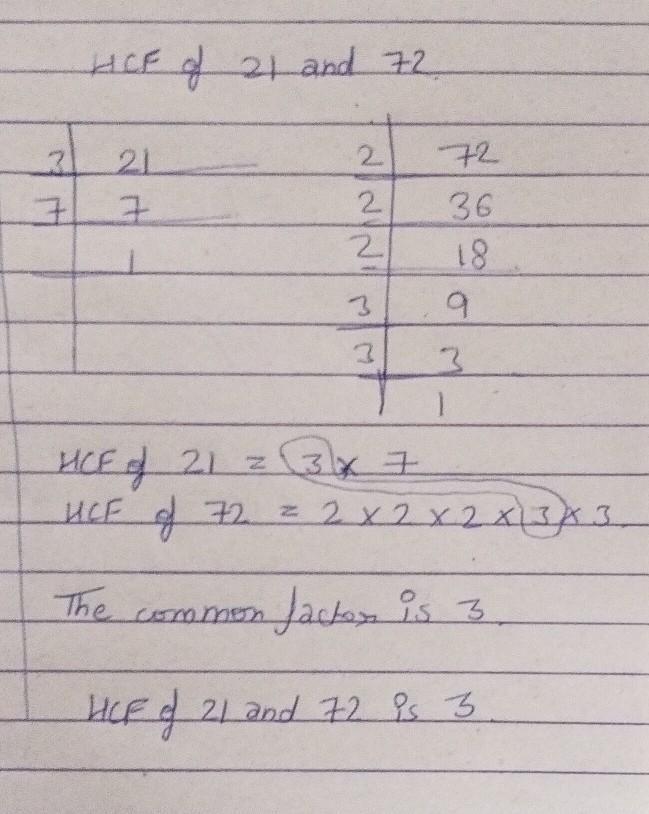 HCF of 21 and 72
3 21 2 72
7 7 2 36
1 2 18
3 9
3 3
1
HCF of 21 = 3 x 7
HCF of 72 = 2 x 2 x 2 x 3 x 3
The common factor is 3
HCF of 21 and 72 is 3